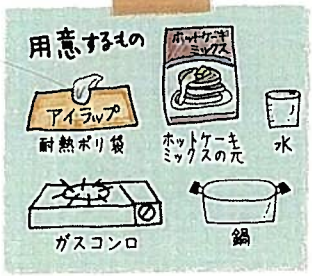 用意するもの
アイラップ
耐熱ポリ袋
ホットケーキ
ミックス
ホットケーキ
ミックスの元
水
ガスコンロ
鍋